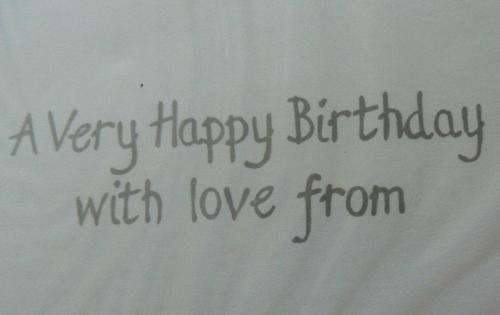 A Very Happy Birthday
with love from